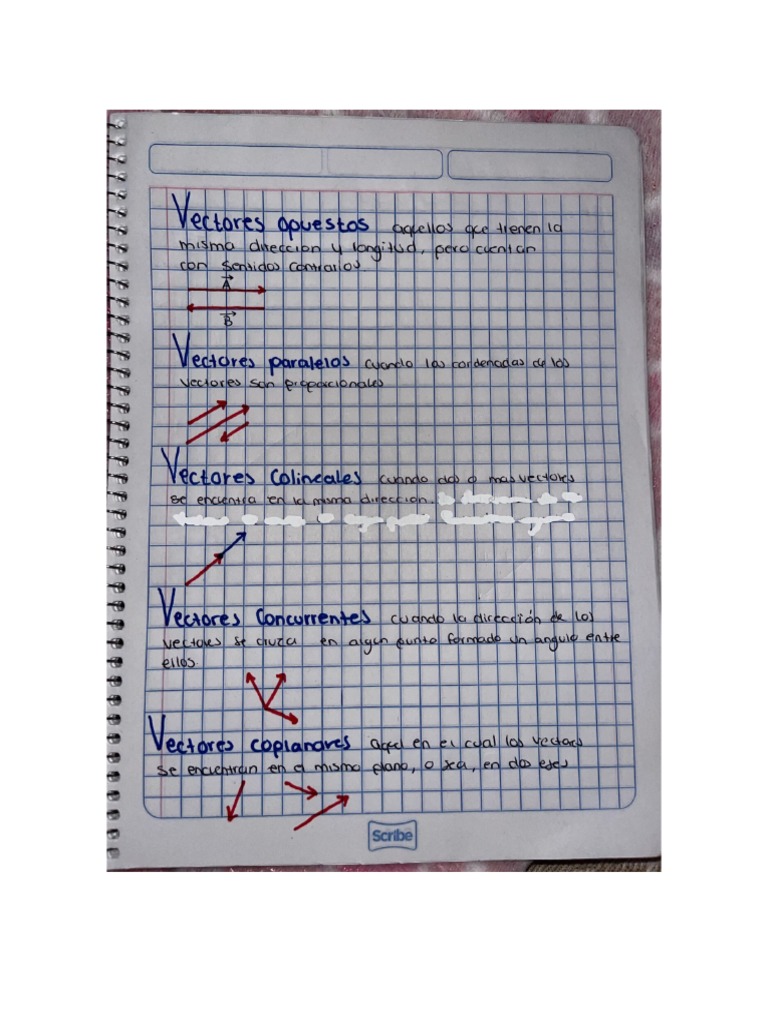 Vectores opuestos aquellos que tienen la
misma direccion y longitud, pero cuentan
con sentidos contrarios.
A
B
Vectores paralelos cuando las cordenadas de los
vectores son proporcionales
Vectores Colineales cuando dos o mas vectores
se encuentra en la misma direccion.
Vectores Concurrentes cuando la dirección de los
vectores se cruza en algun punto formado un angulo entre
ellos.
Vectores coplanares aquel en el cual los vectores
se encuentran en el mismo plano, o sea, en dos ejes
Scribe